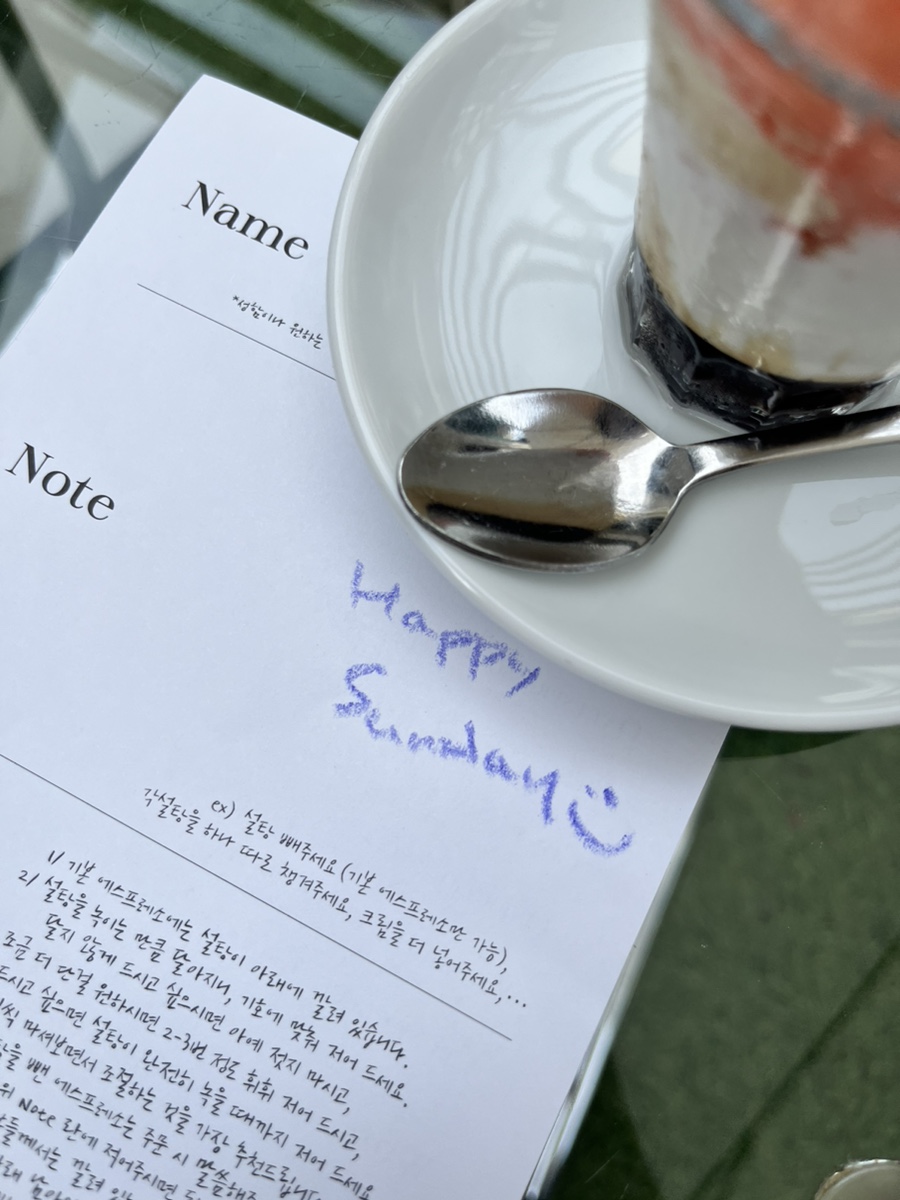 Name
*성함이나 원하는
Note
Happy
Sunday
ex) 설탕 빼주세요 (기본 에스프레소만 가능),
각설탕을 하나 따로 챙겨주세요, 크림을 더 넣어주세요,...
1/ 기본 에스프레소에는 설탕이 아래에 깔려 있습니다.
2/ 설탕을 녹이는 만큼 달아지니, 기호에 맞춰 저어 드세요.
달지 않게 드시고 싶으시면 아예 젓지 마시고,
조금 더 단걸 원하시면 2-3번 정도 휘휘 저어 드시고,
드시고 싶으면 설탕이 완전히 녹을 때까지 저어 드세요
씩 마셔보면서 조절하는 것을 가장 추천드립니다
을 뺀 에스프레소는 주문 시 말씀해주
위 Note 란에 적어주시면
들께서는 깔려